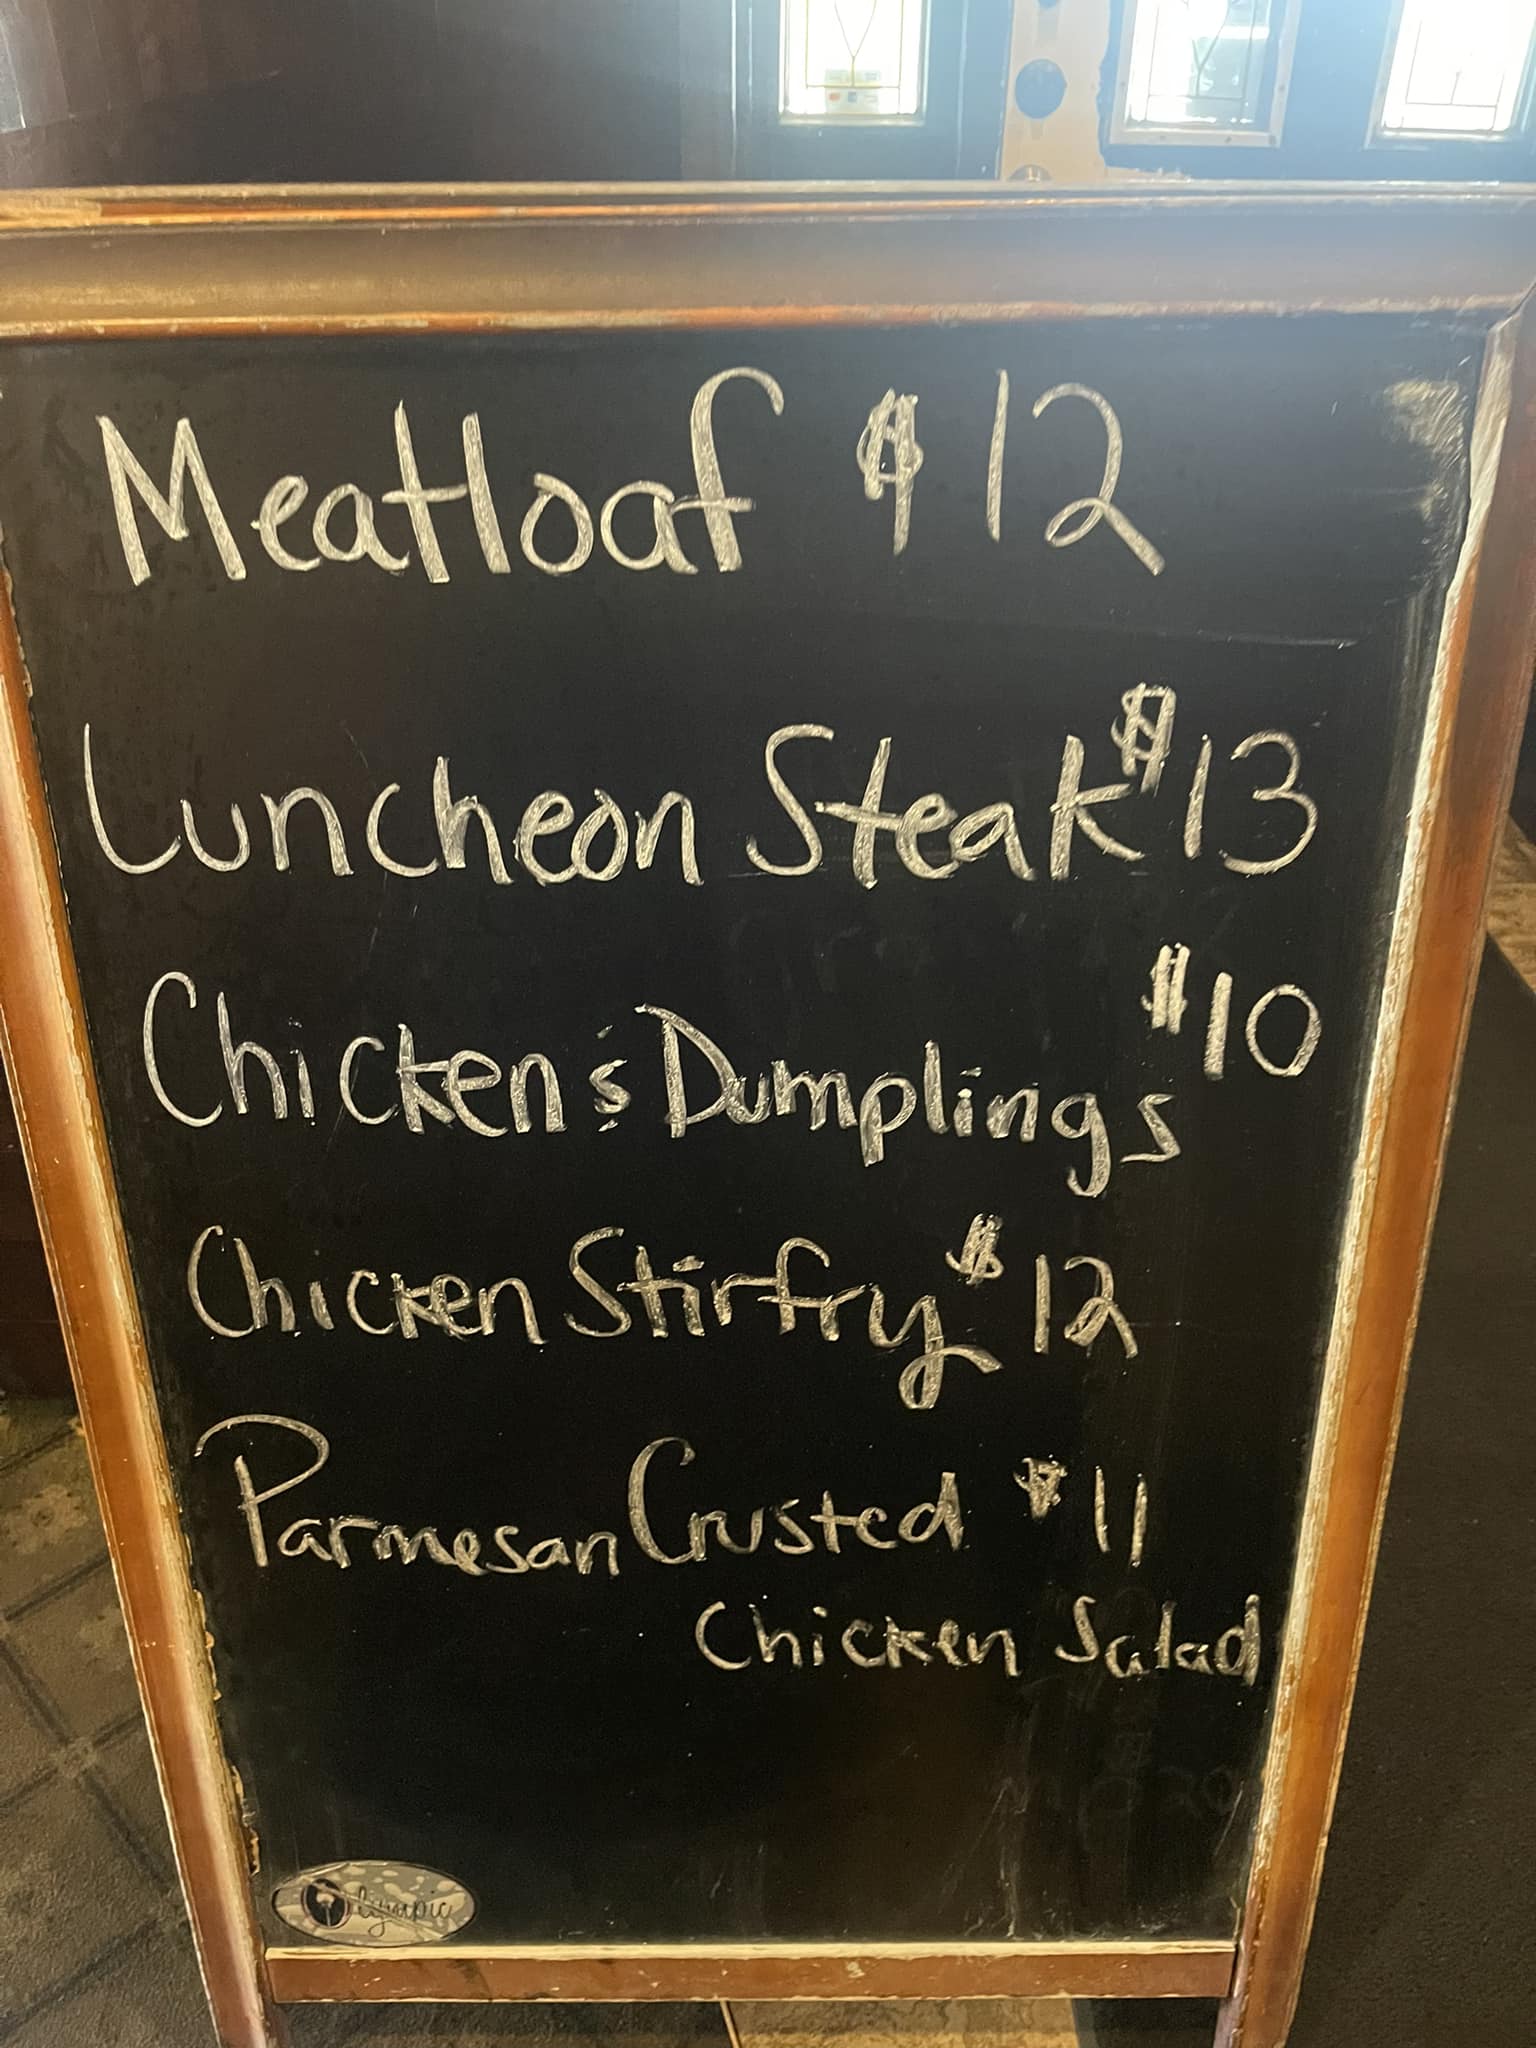 Meatloaf $12
Luncheon Steak $13
Chicken & Dumplings $10
Chicken Stirfry $12
Parmesan Crusted $11
Chicken Salad
Olympic